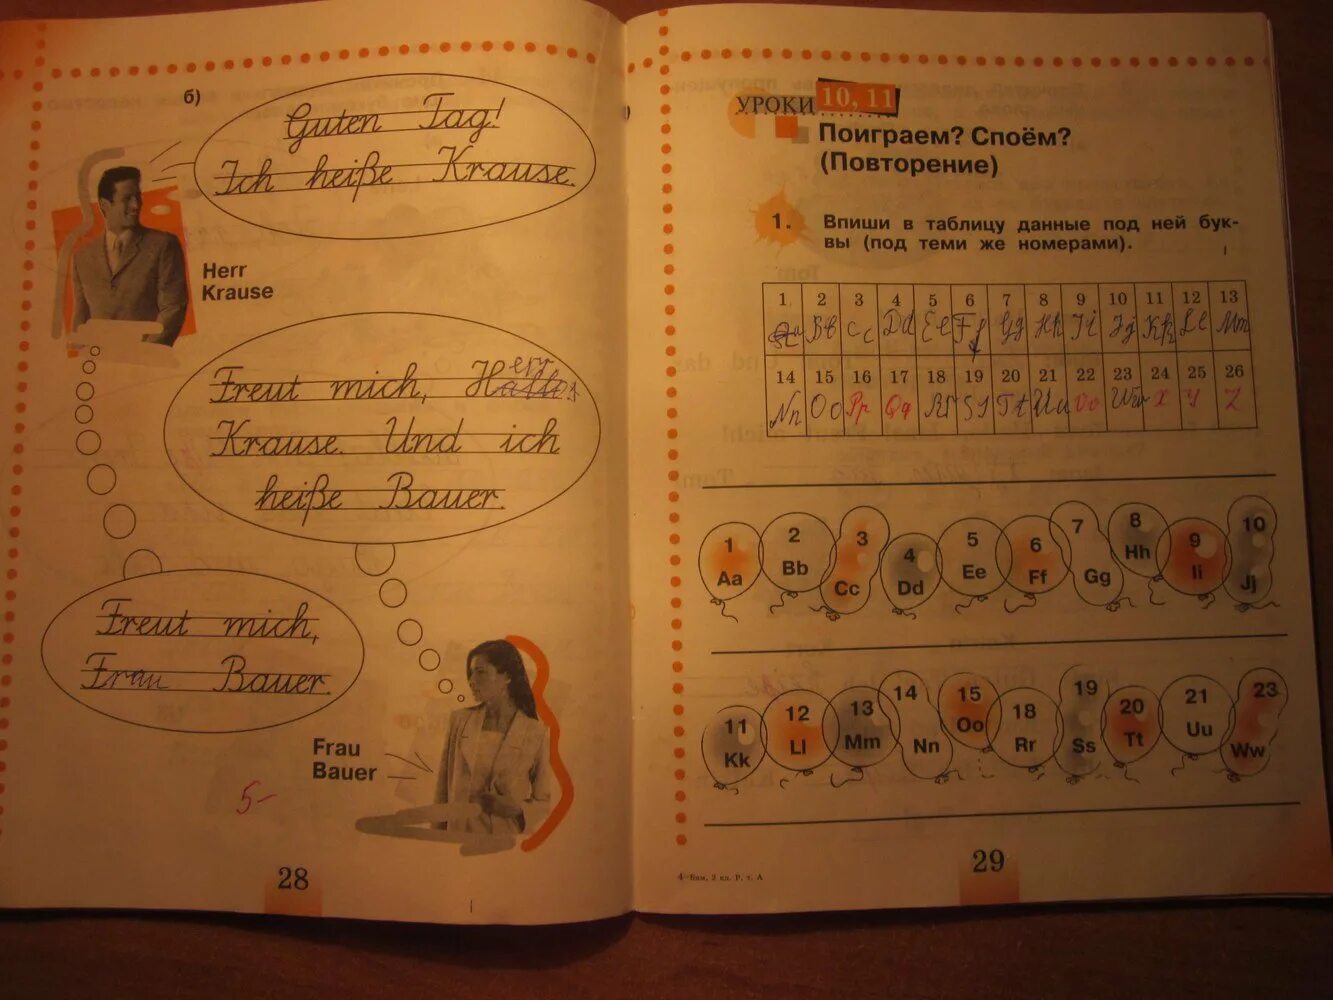 б)
Guten Tag!
Ich heiße Krause.
Herr
Krause
Freut mich, Herr
Krause. Und ich
heiße Bauer.
Freut mich,
Frau Bauer.
Frau
Bauer
5-
28
УРОКИ 10, 11
Поиграем? Споём?
(Повторение)
1. Впиши в таблицу данные под ней бук-
вы (под теми же номерами).
1 2 3 4 5 6 7 8 9 10 11 12 13
Aa Bb Cc Dd Ee Ff Gg Hh Ii Jj Kk Ll Mm
14 15 16 17 18 19 20 21 22 23 24 25 26
Nn Oo Pp Qq Rr Ss Tt Uu Vv Ww X Y Z
1 2 3 4 5 6 7 8 9 10
Aa Bb Cc Dd Ee Ff Gg Hh Ii Jj
11 12 13 14 15 18 19 20 21 23
Kk Ll Mm Nn Oo Rr Ss Tt Uu Ww
4–Бим, 2 кл. Р. т. А
29